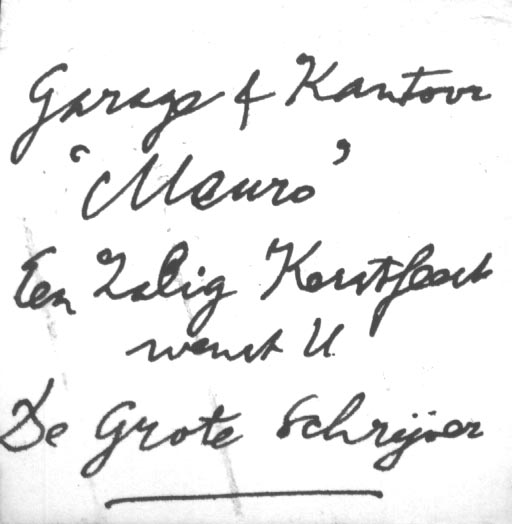 Garage & Kantoor
'Mauro'
Een Zalig Kerstfeest
wenst U
De Grote Schrijver